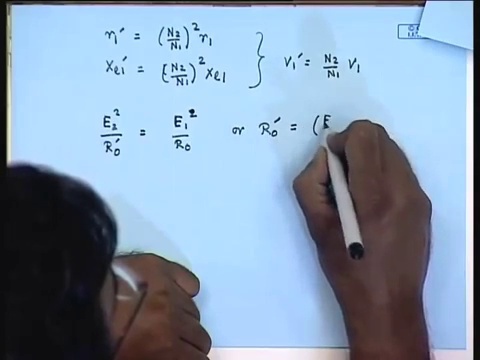 r₁' = (N₂/N₁)² r₁
xₑ₁' = [N₂/N₁)² xₑ₁ } V₁' = N₂/N₁ V₁
E₂²/R₀' = E₁²/R₀ or R₀' = (E